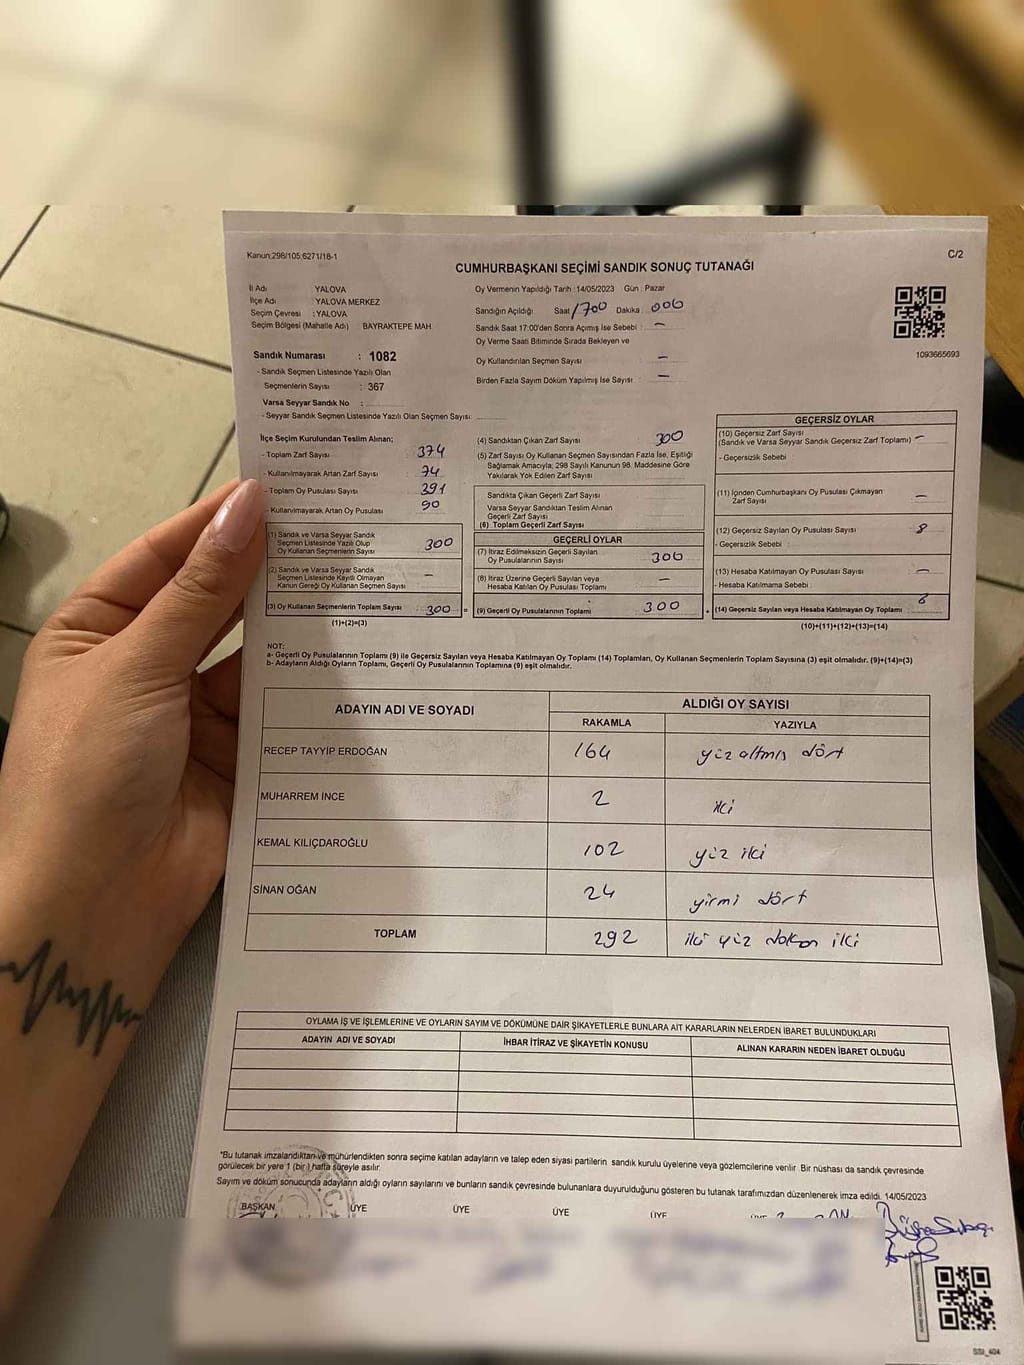 Kanun:298/105;6271/18-1
C/2
CUMHURBAŞKANI SEÇİMİ SANDIK SONUÇ TUTANAĞI
İl Adı YALOVA
İlçe Adı : YALOVA MERKEZ
Seçim Çevresi : YALOVA
Seçim Bölgesi (Mahalle Adı) BAYRAKTEPE MAH
Oy Vermenin Yapıldığı Tarih :14/05/2023 Gün : Pazar
Sandığın Açıldığı Saat 1700 Dakika : 000
Sandık Saat 17:00'den Sonra Açımış İse Sebebi : –
Oy Verme Saati Bitiminde Sırada Bekleyen ve
Oy Kullandırılan Seçmen Sayısı –
Birden Fazla Sayım Döküm Yapılmış İse Sayısı : –
1093665693
Sandık Numarası : 1082
- Sandık Seçmen Listesinde Yazılı Olan
Seçmenlerin Sayısı : 367
Varsa Seyyar Sandık No :
- Seyyar Sandık Seçmen Listesinde Yazılı Olan Seçmen Sayısı:
İlçe Seçim Kurulundan Teslim Alınan;
- Toplam Zarf Sayısı 374
- Kullanılmayarak Artan Zarf Sayısı 74
- Toplam Oy Pusulası Sayısı 391
- Kullanılmayarak Artan Oy Pusulası 90
(1) Sandık ve Varsa Seyyar Sandık
Seçmen Listesinde Yazılı Olup
Oy Kullanan Seçmenlerin Sayısı 300
(2) Sandık ve Varsa Seyyar Sandık
Seçmen Listesinde Kayıtlı Olmayan
Kanun Gereği Oy Kullanan Seçmen Sayısı –
(3) Oy Kullanan Seçmenlerin Toplam Sayısı 300 =
(1)+(2)=(3)
(4) Sandıktan Çıkan Zarf Sayısı : 300
(5) Zarf Sayısı Oy Kullanan Seçmen Sayısından Fazla İse, Eşitliği
Sağlamak Amacıyla, 298 Sayılı Kanunun 98. Maddesine Göre
Yakılarak Yok Edilen Zarf Sayısı
Sandıkta Çıkan Geçerli Zarf Sayısı
Varsa Seyyar Sandıktan Teslim Alınan
Geçerli Zarf Sayısı
(6) Toplam Geçerli Zarf Sayısı
GEÇERLİ OYLAR
(7) İtiraz Edilmeksizin Geçerli Sayılan
Oy Pusulalarının Sayısı: 300
(8) İtiraz Üzerine Geçerli Sayılan veya
Hesaba Katılan Oy Pusulası Sayısı –
(9) Geçerli Oy Pusulalarının Toplamı : 300
GEÇERSİZ OYLAR
(10) Geçersiz Zarf Sayısı
(Sandık ve Varsa Seyyar Sandık Geçersiz Zarf Toplamı) –
- Geçersizlik Sebebi
(11) İçinden Cumhurbaşkanı Oy Pusulası Çıkmayan
Zarf Sayısı –
(12) Geçersiz Sayılan Oy Pusulası Sayısı 8
- Geçersizlik Sebebi
(13) Hesaba Katılmayan Oy Pusulası Sayısı –
- Hesaba Katılmama Sebebi
(14) Geçersiz Sayılan veya Hesaba Katılmayan Oy Toplamı 8
(10)+(11)+(12)+(13)=(14)
NOT:
a- Geçerli Oy Pusulalarının Toplamı (9) ile Geçersiz Sayılan veya Hesaba Katılmayan Oy Toplamı (14) Toplamları, Oy Kullanan Seçmenlerin Toplam Sayısına (3) eşit olmalıdır. (9)+(14)=(3)
b- Adayların Aldığı Oyların Toplamı, Geçerli Oy Pusulalarının Toplamına (9) eşit olmalıdır.
ADAYIN ADI VE SOYADI ALDIĞI OY SAYISI
RAKAMLA YAZIYLA
RECEP TAYYİP ERDOĞAN 164 yüz altmış dört
MUHARREM İNCE 2 iki
KEMAL KILIÇDAROĞLU 102 yüz iki
SİNAN OĞAN 24 yirmi dört
TOPLAM 292 iki yüz doksan iki
OYLAMA İŞ VE İŞLEMLERİNE VE OYLARIN SAYIM VE DÖKÜMÜNE DAİR ŞİKAYETLERLE BUNLARA AİT KARARLARIN NELERDEN İBARET BULUNDUKLARI
ADAYIN ADI VE SOYADI İHBAR İTİRAZ VE ŞİKAYETİN KONUSU ALINAN KARARIN NEDEN İBARET OLDUĞU
*Bu tutanak imzalandıktan ve mühürlendikten sonra seçime katılan adayların ve talep eden siyasi partilerin sandık kurulu üyelerine veya gözlemcilerine verilir. Bir nüshası da sandık çevresinde
görülecek bir yere 1 (bir) hafta süreyle asılır.
Sayım ve döküm sonucunda adayların aldığı oyların sayılarını ve bunların sandık çevresinde bulunanlara duyurulduğunu gösteren bu tutanak tarafımızdan düzenlenerek imza edildi. 14/05/2023
BAŞKAN ÜYE ÜYE ÜYE ÜYE